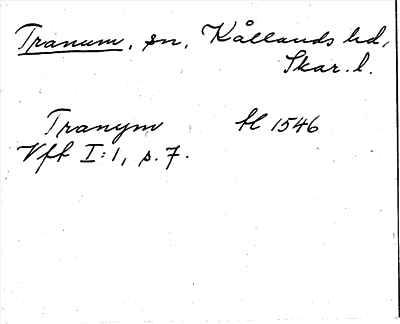 Tranum, sn, Kållands hd,
Skar. l.
Tranym hl 1546
Vfb I:1, s. 7.